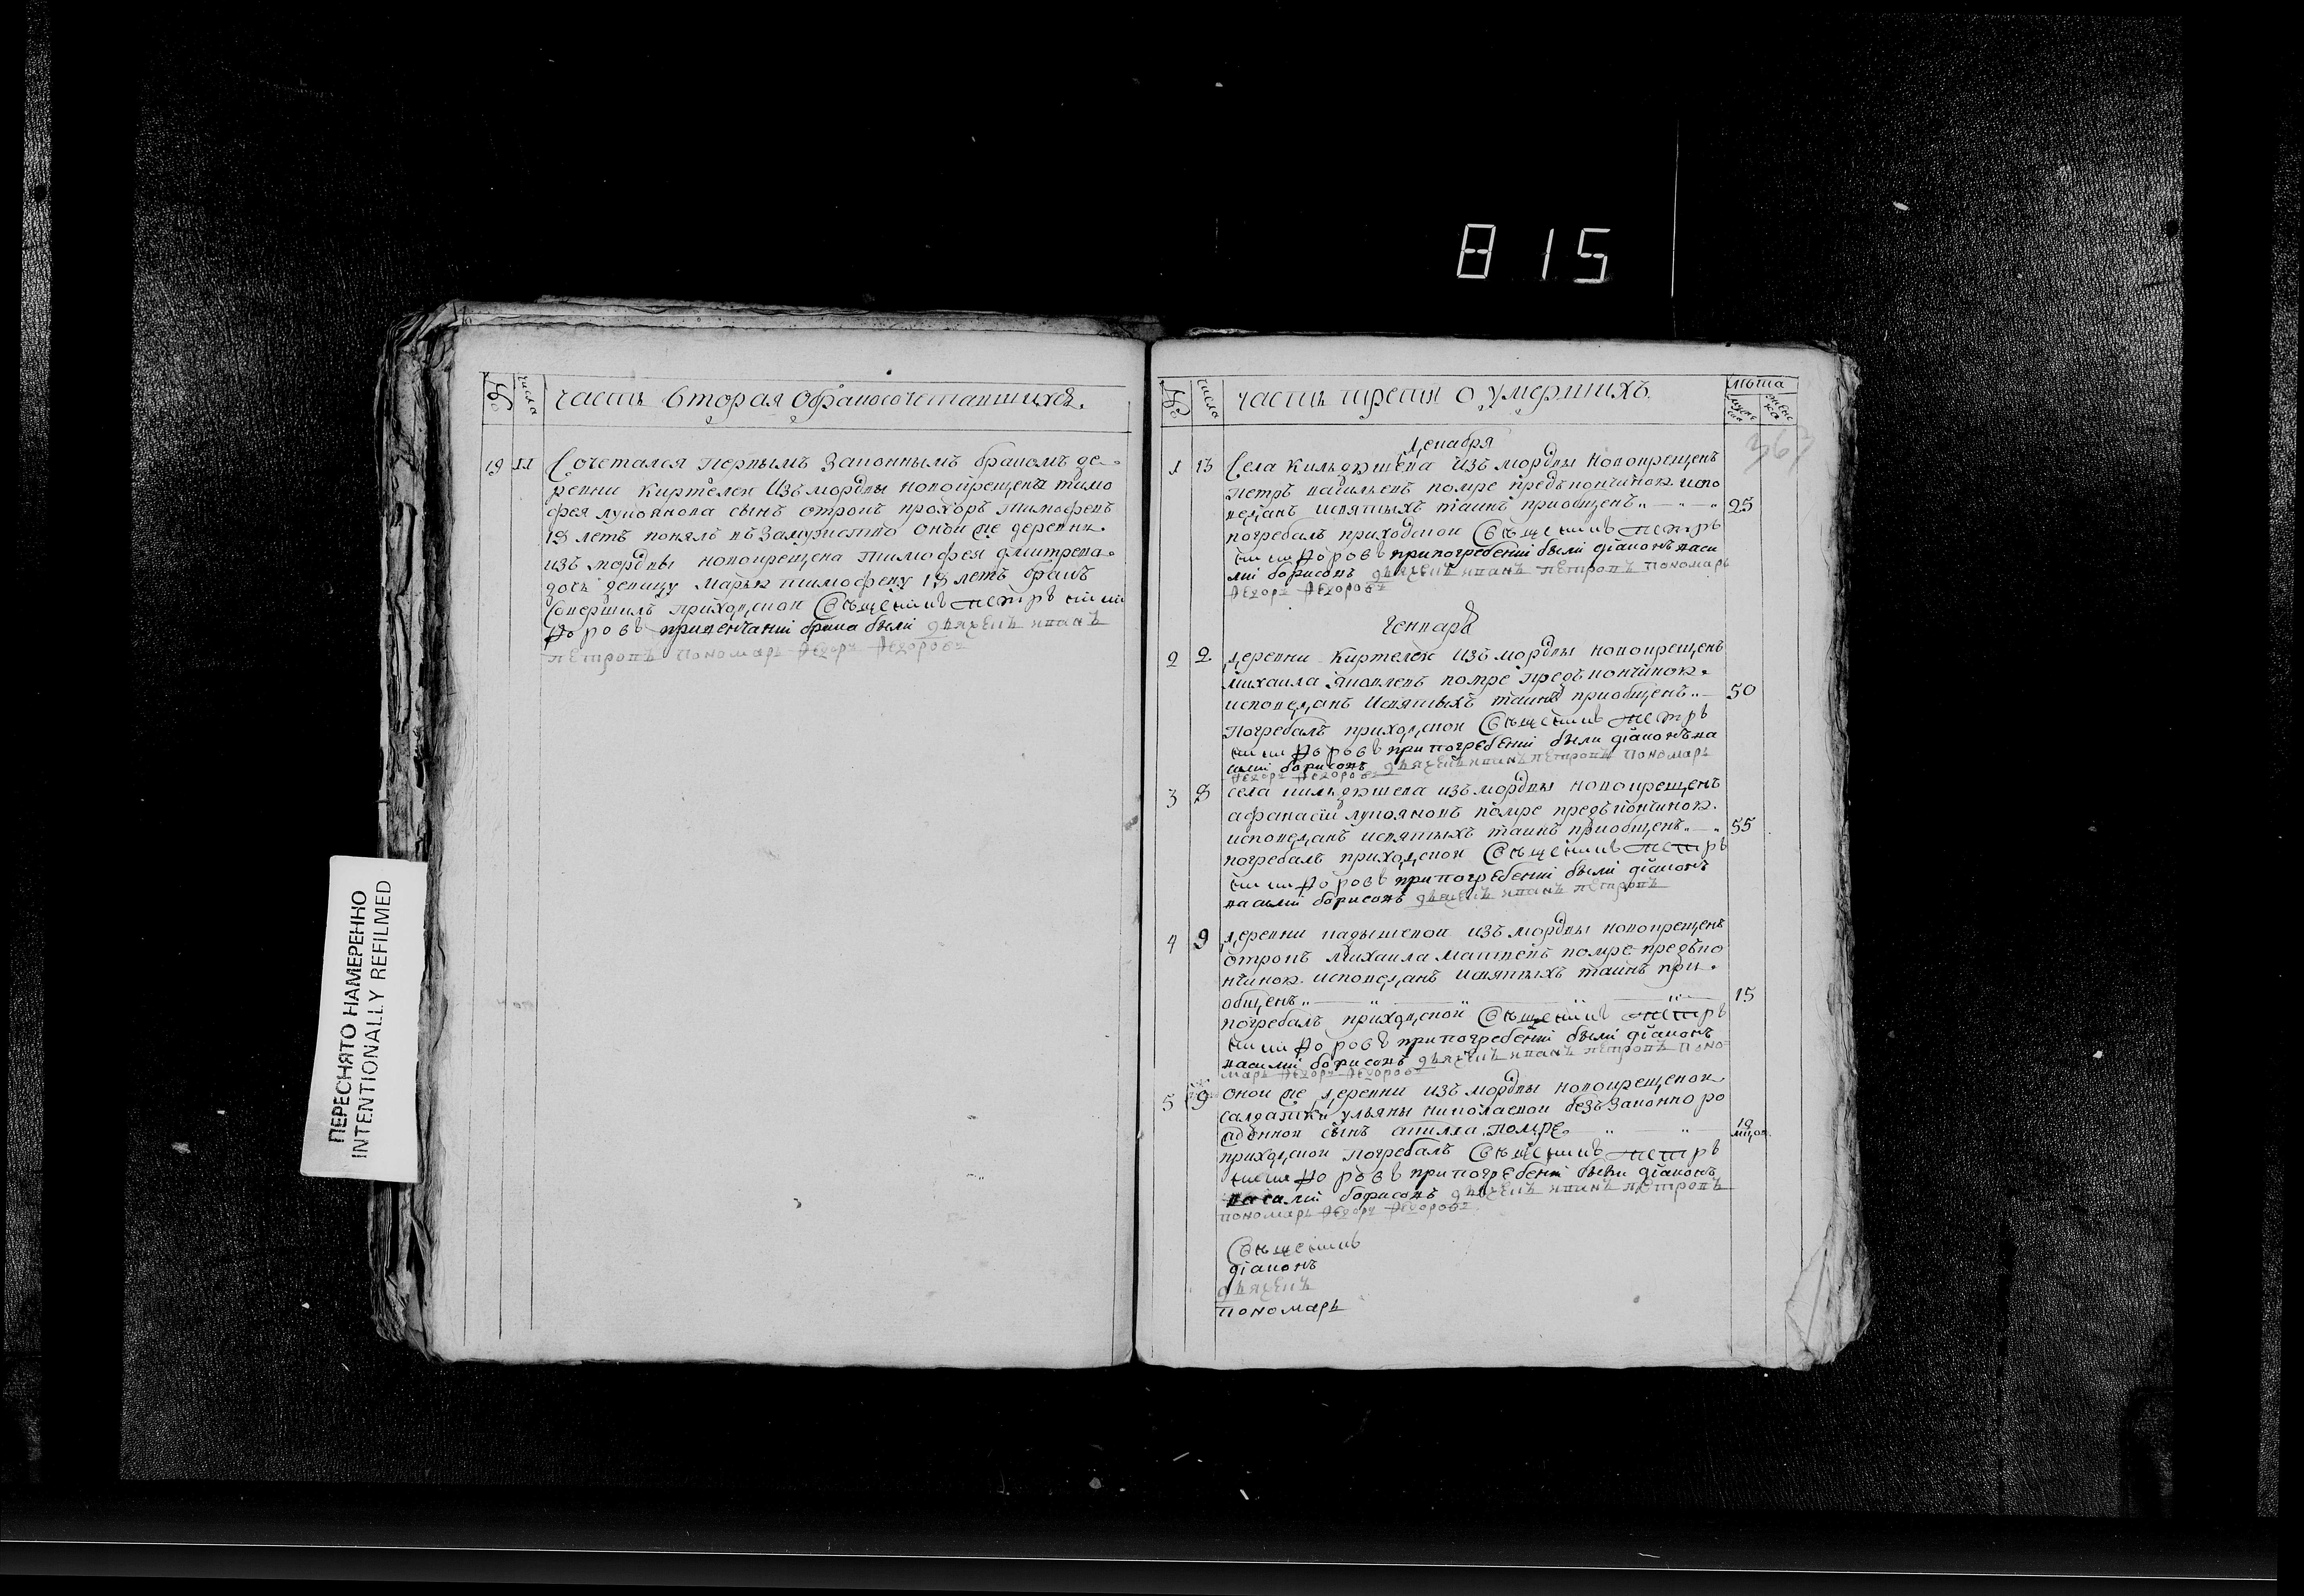 815
№ числа часть вторая о бракосочетавшихся.
19 11 Сочетался первымъ законнымъ бракомъ де-
ревни киртелей изъ мордвы новокрещена тимо
фея лукоянова сынъ отрокъ прохоръ тимофеевъ
19 летъ понялъ въ замужство оной же деревни
изъ мордвы новокрещена тимофея дмитрева
дочь девицу марью тимофеву 19 летъ бракъ
совершилъ приходской священникъ петръ
при венчаніи брака были дьячекъ иванъ
петровъ пономарь федоръ федоровъ
№ число часть третия о умерших лѣта
муже ска женс ка
367
декабря
1 13 Села кильдюшева изъ мордвы новокрещенъ
петръ васильевъ помре предъ кончиною испо
веданъ и святыхъ таинъ приобщенъ 25
погребалъ приходской священникъ петръ
при погребеніи были діаконъ васи
лій борисовъ дьячекъ иванъ петровъ пономарь
федоръ федоровъ
генваря
2 2 деревни киртелей изъ мордвы новокрещенъ
михаила яковлевъ помре предъ кончиною
исповеданъ и святыхъ таинъ приобщенъ 50
погребалъ приходской священникъ петръ
при погребеніи были діаконъ ва
силій борисовъ дьячекъ иванъ петровъ пономарь
федоръ федоровъ
3 8 села кильдюшева изъ мордвы новокрещенъ
афанасій лукояновъ помре предъ кончиною
исповеданъ и святыхъ таинъ приобщенъ 55
погребалъ приходской священникъ петръ
при погребеніи были діаконъ
василій борисовъ дьячекъ иванъ петровъ
4 9 деревни кадышевой изъ мордвы новокрещенъ
отрокъ михаила матвеевъ помре предъ ко
нчиною исповеданъ и святыхъ таинъ при
общенъ 15
погребалъ приходской священникъ петръ
при погребеніи были діаконъ
василій борисовъ дьячекъ иванъ петровъ поно
марь федоръ федоровъ
5 9 оной же деревни изъ мордвы новокрещеной
салдатки ульяны николаевой беззаконно ро
жденной сынъ помре
приходской погребалъ священникъ петръ
при погребеніи были діаконъ
василій борисовъ дьячекъ иванъ петровъ
пономарь федоръ федоровъ
Священникъ
діаконъ
дьячекъ
пономарь
ПЕРЕСНЯТО НАМЕРЕННО
INTENTIONALLY REFILMED